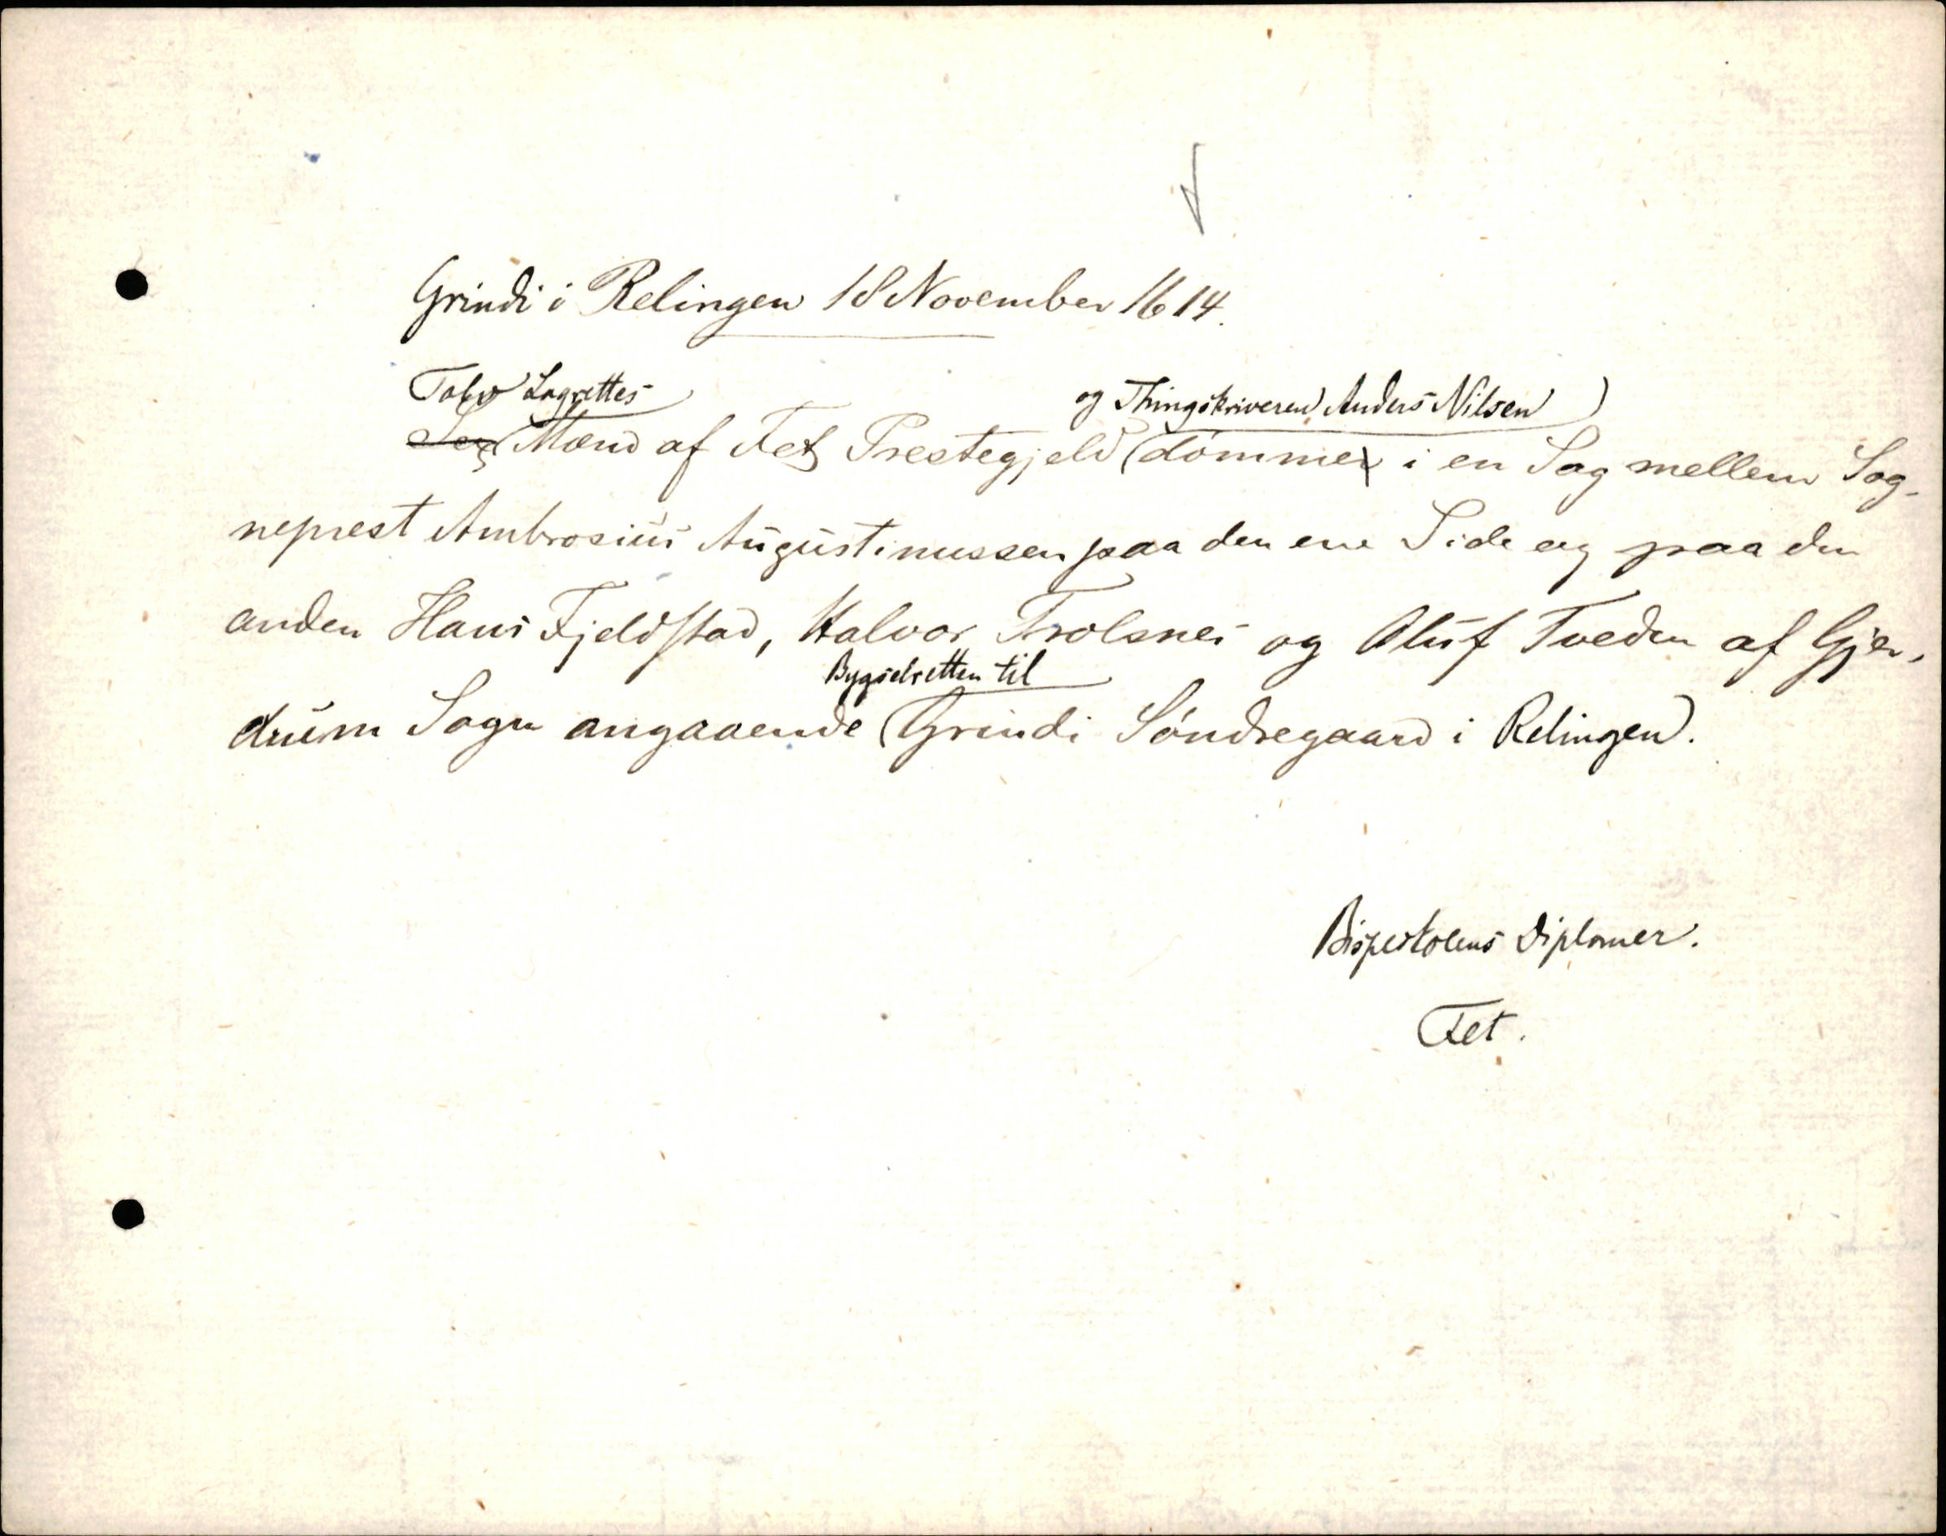 Grindi i Relingen 18 November 1614.
Tolv Lagrettes
og Thingskriveren Anders Nilsen
Sex Mænd af Fet Prestegjeld dømmer i en Sag mellem Sog-
neprest Ambrosius Augustinussen paa den ene Side og paa den
anden Hans Fjeldstad, Halvor Trolsnes og Oluf Tveden af Gjer-
Bygselretten til
drum Sogn angaaende Grindi Søndregaard i Relingen.
Bispestolens Diplomer.
Fet.